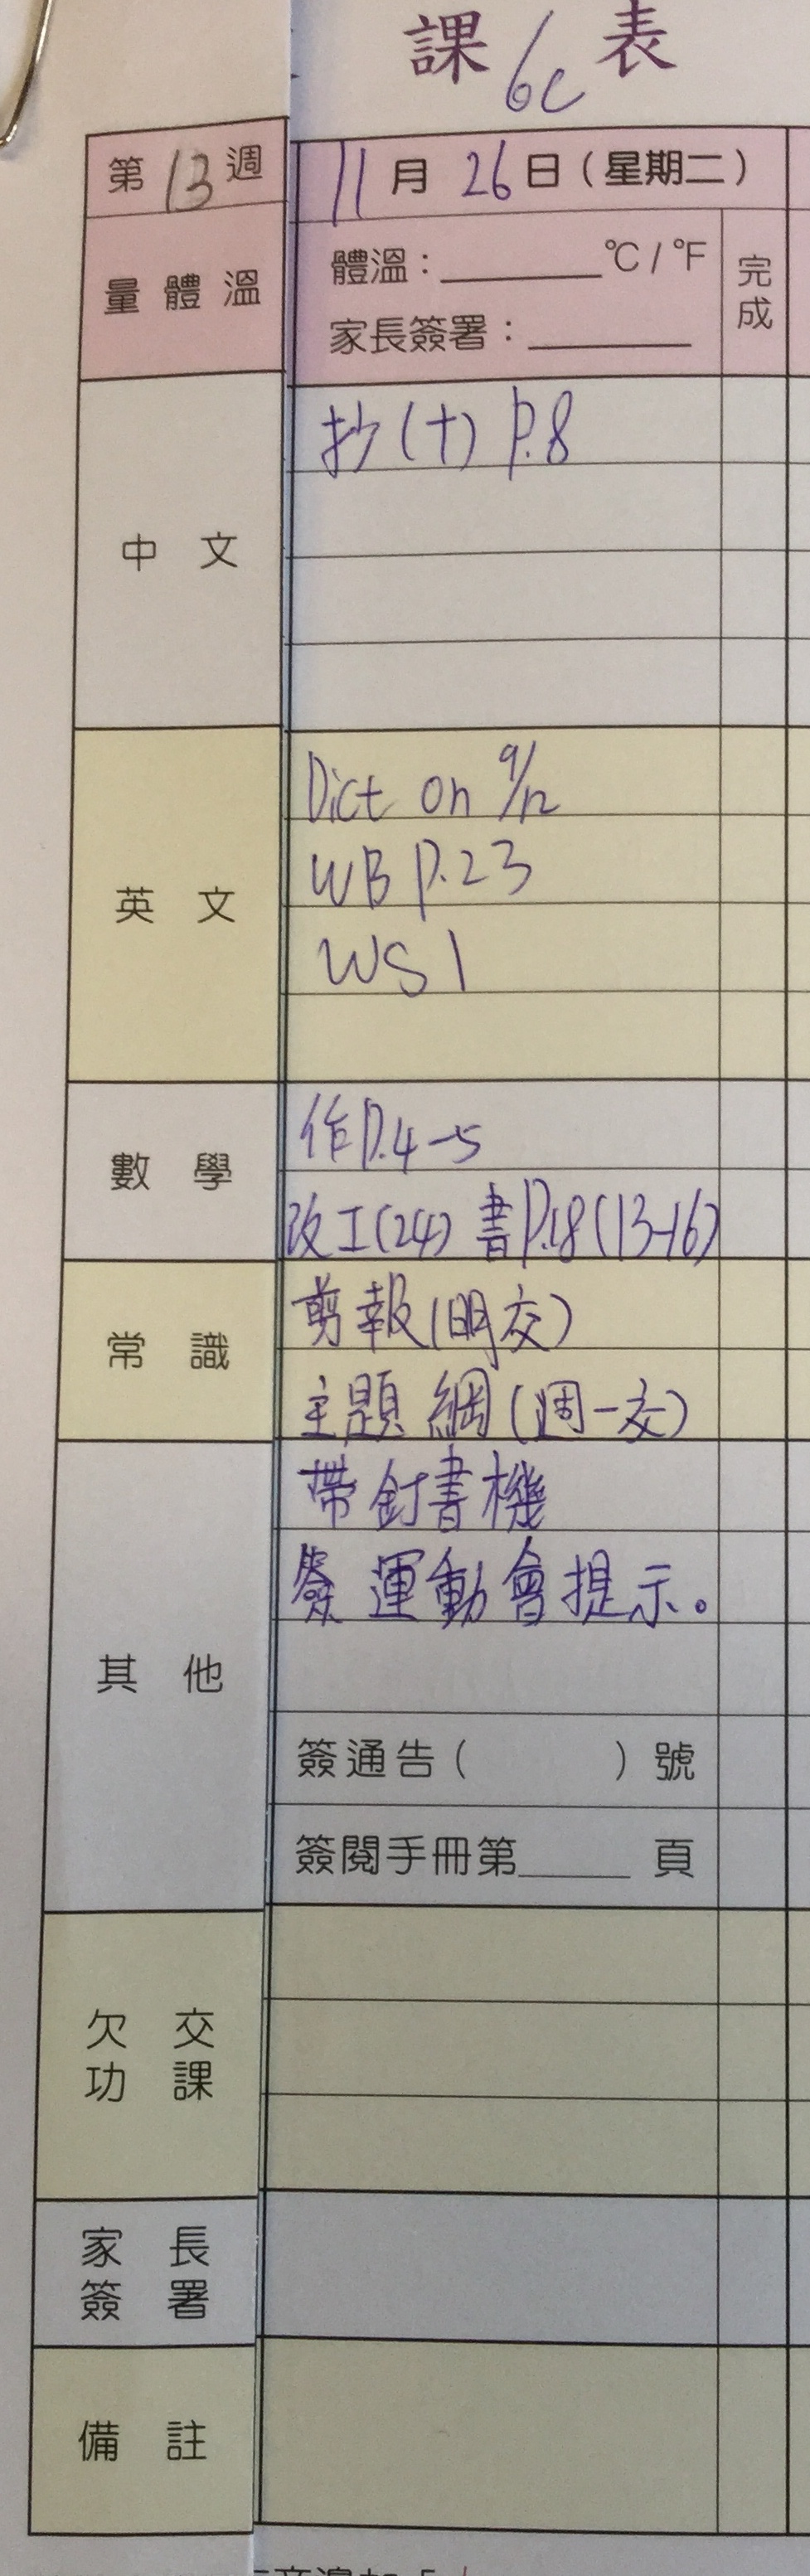 課 6C 表
第13週
11月26日（星期二）
量體溫
體溫：______°C / °F
家長簽署：______
完成
中文
抄(十) P.8
英文
Dict on 9/12
WB P.23
WS 1
數學
作P.4-5
改工(24) 書P.18(13-16)
常識
剪報(明交)
主題網(週一交)
其他
帶釘書機
簽運動會提示。
簽通告（ ）號
簽閱手冊第_____頁
欠交
功課
家長
簽署
備註